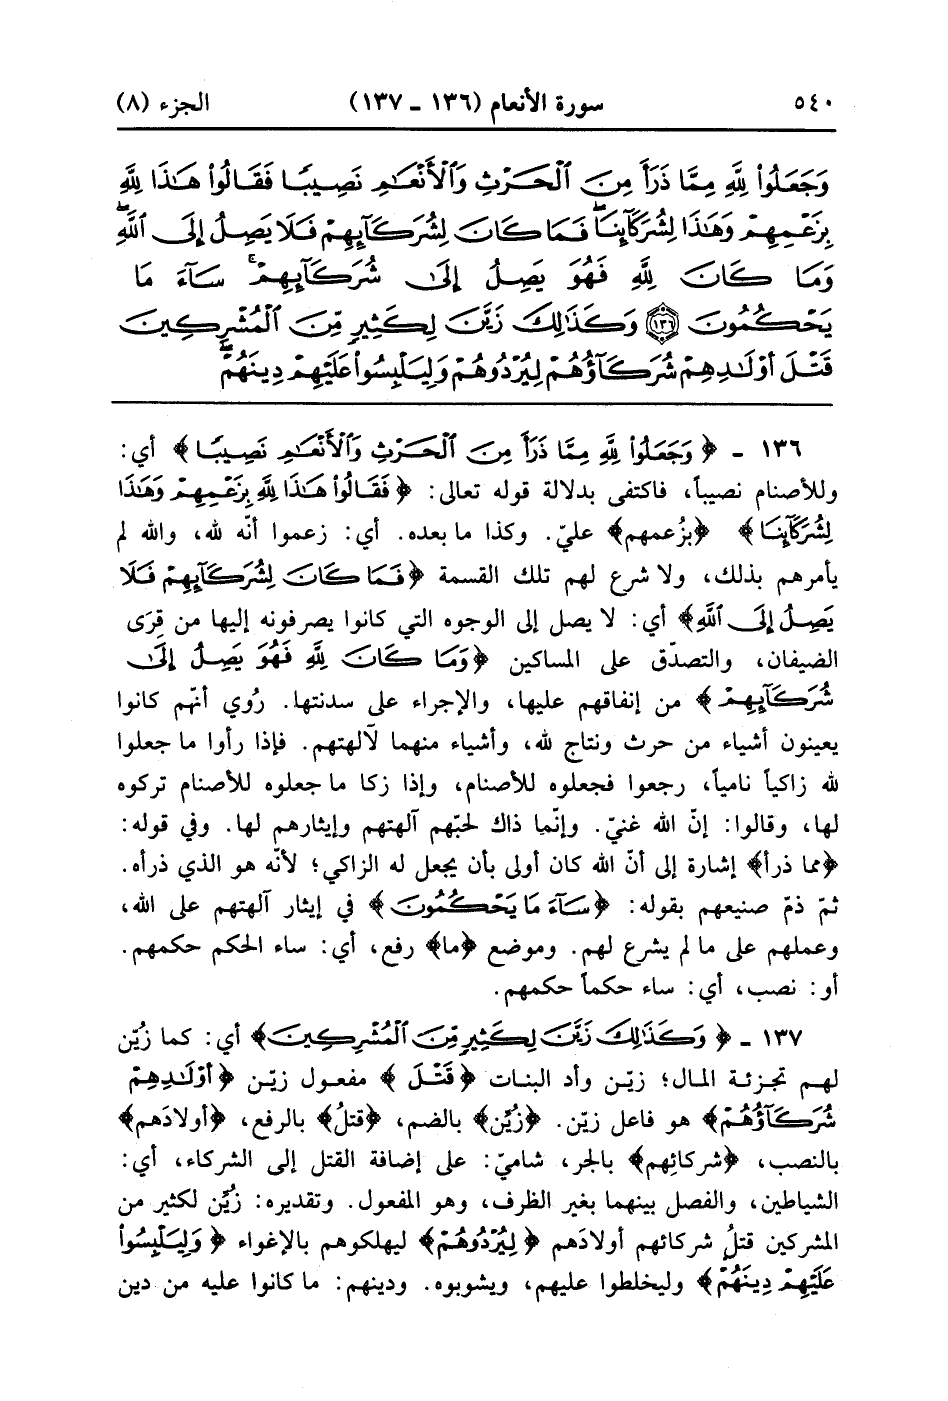 ٥٤٠ سورة الأنعام (١٣٦ ـ ١٣٧) الجزء (٨)
وَجَعَلُواْ لِلَّهِ مِمَّا ذَرَأَ مِنَ ٱلْحَرْثِ وَٱلْأَنْعَٰمِ نَصِيبًا فَقَالُواْ هَٰذَا لِلَّهِ
بِزَعْمِهِمْ وَهَٰذَا لِشُرَكَآئِنَا ۖ فَمَا كَانَ لِشُرَكَآئِهِمْ فَلَا يَصِلُ إِلَى ٱللَّهِ ۖ
وَمَا كَانَ لِلَّهِ فَهُوَ يَصِلُ إِلَىٰ شُرَكَآئِهِمْ ۗ سَآءَ مَا
يَحْكُمُونَ ﴿١٣٦﴾ وَكَذَٰلِكَ زَيَّنَ لِكَثِيرٍ مِّنَ ٱلْمُشْرِكِينَ
قَتْلَ أَوْلَٰدِهِمْ شُرَكَآؤُهُمْ لِيُرْدُوهُمْ وَلِيَلْبِسُواْ عَلَيْهِمْ دِينَهُمْ ۖ
١٣٦ ـ ﴿وَجَعَلُواْ لِلَّهِ مِمَّا ذَرَأَ مِنَ ٱلْحَرْثِ وَٱلْأَنْعَٰمِ نَصِيبًا﴾ أي:
وللأصنام نصيباً، فاكتفى بدلالة قوله تعالى: ﴿فَقَالُواْ هَٰذَا لِلَّهِ بِزَعْمِهِمْ وَهَٰذَا
لِشُرَكَآئِنَا﴾ ﴿بزُعمهم﴾ عليّ. وكذا ما بعده. أي: زعموا أنّه لله، والله لم
يأمرهم بذلك، ولا شرع لهم تلك القسمة ﴿فَمَا كَانَ لِشُرَكَآئِهِمْ فَلَا
يَصِلُ إِلَى ٱللَّهِ﴾ أي: لا يصل إلى الوجوه التي كانوا يصرفونه إليها من قِرَى
الضيفان، والتصدّق على المساكين ﴿وَمَا كَانَ لِلَّهِ فَهُوَ يَصِلُ إِلَىٰ
شُرَكَآئِهِمْ﴾ من إنفاقهم عليها، والإجراء على سدنتها. رُوي أنّهم كانوا
يعينون أشياء من حرث ونتاج لله، وأشياء منهما لآلهتهم. فإذا رأوا ما جعلوا
لله زاكياً نامياً، رجعوا فجعلوه للأصنام، وإذا زكا ما جعلوه للأصنام تركوه
لها، وقالوا: إنّ الله غنيّ. وإنّما ذاك لحبّهم آلهتهم وإيثارهم لها. وفي قوله:
﴿مما ذرأ﴾ إشارة إلى أنّ الله كان أولى بأن يجعل له الزاكي؛ لأنّه هو الذي ذرأه.
ثمّ ذمّ صنيعهم بقوله: ﴿سَآءَ مَا يَحْكُمُونَ﴾ في إيثار آلهتهم على الله،
وعملهم على ما لم يشرع لهم. وموضع ﴿ما﴾ رفع، أي: ساء الحكم حكمهم.
أو: نصب، أي: ساء حكماً حكمهم.
١٣٧ ـ ﴿وَكَذَٰلِكَ زَيَّنَ لِكَثِيرٍ مِّنَ ٱلْمُشْرِكِينَ﴾ أي: كما زُيّن
لهم تجزئة المال؛ زيّن وأد البنات ﴿قَتْلَ﴾ مفعول زيّن ﴿أَوْلَٰدِهِمْ
شُرَكَآؤُهُمْ﴾ هو فاعل زيّن. ﴿زُيِّن﴾ بالضم، ﴿قتلُ﴾ بالرفع، ﴿أولادَهم﴾
بالنصب، ﴿شركائِهم﴾ بالجر، شاميّ: على إضافة القتل إلى الشركاء، أي:
الشياطين، والفصل بينهما بغير الظرف، وهو المفعول. وتقديره: زُيِّن لكثير من
المشركين قتلُ شركائهم أولادَهم ﴿لِيُرْدُوهُمْ﴾ ليهلكوهم بالإغواء ﴿وَلِيَلْبِسُواْ
عَلَيْهِمْ دِينَهُمْ﴾ وليخلطوا عليهم، ويشوبوه. ودينهم: ما كانوا عليه من دين